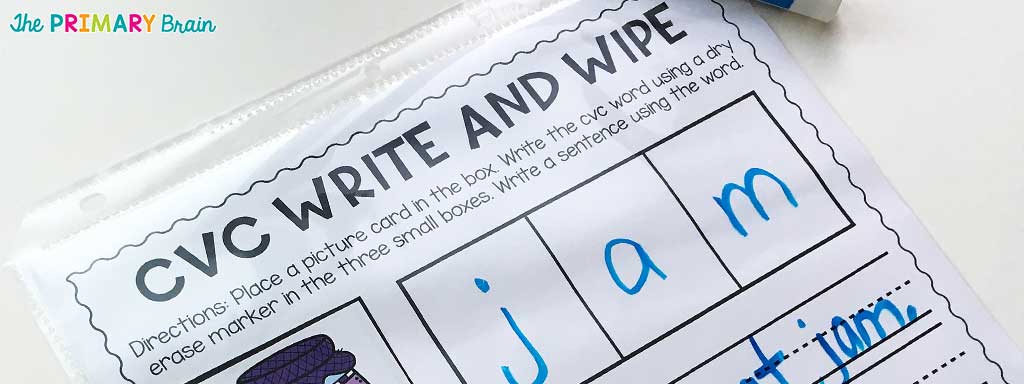 The PRIMARY Brain
CVC WRITE AND WIPE
Directions: Place a picture card in the box. Write the cvc word using a dry
erase marker in the three small boxes. Write a sentence using the word.
j a m
jam.